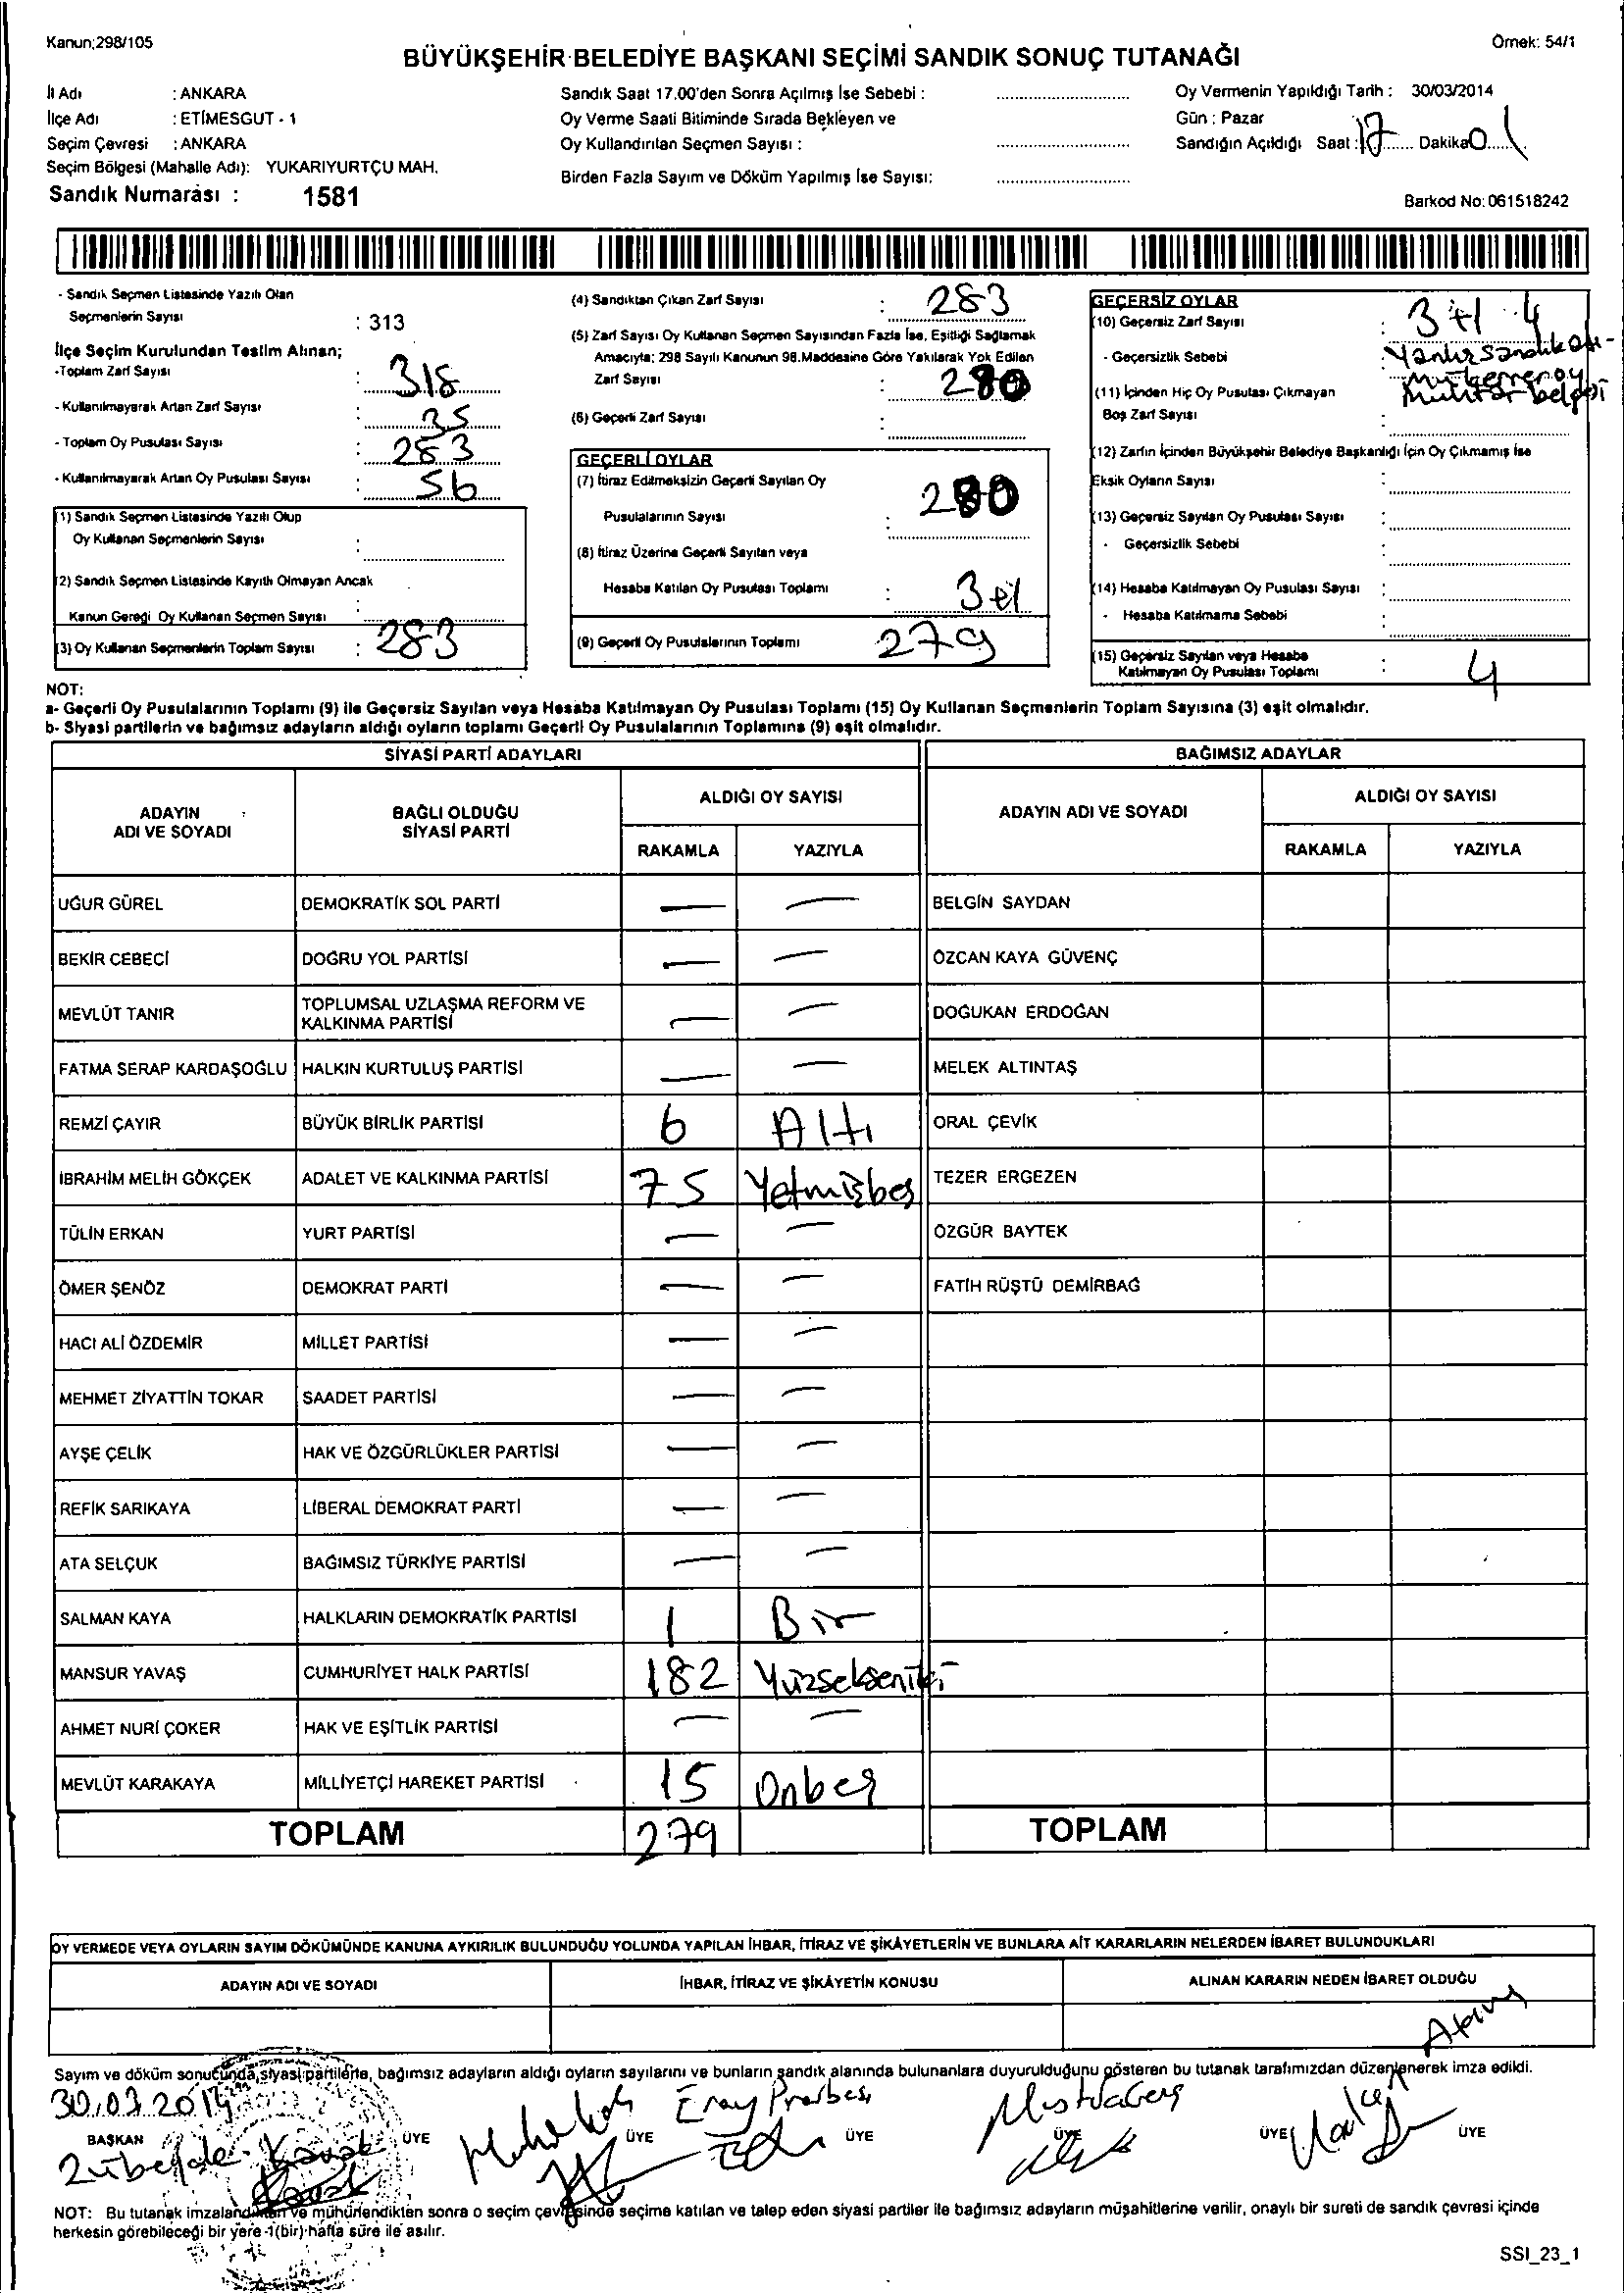 Kanun;298/105
Örnek: 54/1
BÜYÜKŞEHİR BELEDİYE BAŞKANI SEÇİMİ SANDIK SONUÇ TUTANAĞI
İl Adı : ANKARA
İlçe Adı : ETİMESGUT - 1
Seçim Çevresi : ANKARA
Seçim Bölgesi (Mahalle Adı): YUKARIYURTÇU MAH.
Sandık Numarası : 1581
Sandık Saat 17.00'den Sonra Açılmış İse Sebebi :
Oy Verme Saati Bitiminde Sırada Bekleyen ve
Oy Kullandırılan Seçmen Sayısı :
Birden Fazla Sayım ve Döküm Yapılmış İse Sayısı:
Oy Vermenin Yapıldığı Tarih : 30/03/2014
Gün : Pazar
Sandığın Açıldığı Saat : 17 Dakika 01
Barkod No: 061518242
- Sandık Seçmen Listesinde Yazılı Olan
Seçmenlerin Sayısı : 313
İlçe Seçim Kurulundan Teslim Alınan;
-Toplam Zarf Sayısı : 318
- Kullanılmayarak Artan Zarf Sayısı : 35
- Toplam Oy Pusulası Sayısı : 283
- Kullanılmayarak Artan Oy Pusulası Sayısı : 56
(1) Sandık Seçmen Listesinde Yazılı Olup
Oy Kullanan Seçmenlerin Sayısı :
(2) Sandık Seçmen Listesinde Kayıtlı Olmayan Ancak
Kanun Gereği Oy Kullanan Seçmen Sayısı :
(3) Oy Kullanan Seçmenlerin Toplam Sayısı : 283
(4) Sandıktan Çıkan Zarf Sayısı : 283
(5) Zarf Sayısı Oy Kullanan Seçmen Sayısından Fazla İse, Eşitliği Sağlamak
Amacıyla; 298 Sayılı Kanunun 98.Maddesine Göre Yakılarak Yok Edilen
Zarf Sayısı : 280
(6) Geçerli Zarf Sayısı :
GEÇERLİ OYLAR
(7) İtiraz Edilmeksizin Geçerli Sayılan Oy
Pusulalarının Sayısı : 280
(8) İtiraz Üzerine Geçerli Sayılan veya
Hesaba Katılan Oy Pusulası Toplamı : 3
(9) Geçerli Oy Pusulalarının Toplamı 279
GEÇERSİZ OYLAR
(10) Geçersiz Zarf Sayısı : 3+1 4
- Geçersizlik Sebebi : Yanlız sandık
Mükerrer oy
Muhtar belgesi
(11) İçinden Hiç Oy Pusulası Çıkmayan
Boş Zarf Sayısı :
(12) Zarfın İçinden Büyükşehir Belediye Başkanlığı İçin Oy Çıkmamış İse
Eksik Oyların Sayısı :
(13) Geçersiz Sayılan Oy Pusulası Sayısı :
- Geçersizlik Sebebi :
(14) Hesaba Katılmayan Oy Pusulası Sayısı :
- Hesaba Katılmama Sebebi :
(15) Geçersiz Sayılan veya Hesaba
Katılmayan Oy Pusulası Toplamı : 4
NOT:
a- Geçerli Oy Pusulalarının Toplamı (9) ile Geçersiz Sayılan veya Hesaba Katılmayan Oy Pusulası Toplamı (15) Oy Kullanan Seçmenlerin Toplam Sayısına (3) eşit olmalıdır.
b- Siyasi partilerin ve bağımsız adayların aldığı oyların toplamı Geçerli Oy Pusulalarının Toplamına (9) eşit olmalıdır.
SİYASİ PARTİ ADAYLARI
BAĞIMSIZ ADAYLAR
ADAYIN
ADI VE SOYADI
BAĞLI OLDUĞU
SİYASİ PARTİ
ALDIĞI OY SAYISI
RAKAMLA YAZIYLA
ADAYIN ADI VE SOYADI
ALDIĞI OY SAYISI
RAKAMLA YAZIYLA
UĞUR GÜREL DEMOKRATİK SOL PARTİ — — BELGİN SAYDAN
BEKİR CEBECİ DOĞRU YOL PARTİSİ — — ÖZCAN KAYA GÜVENÇ
MEVLÜT TANIR TOPLUMSAL UZLAŞMA REFORM VE KALKINMA PARTİSİ — — DOĞUKAN ERDOĞAN
FATMA SERAP KARDAŞOĞLU HALKIN KURTULUŞ PARTİSİ — — MELEK ALTINTAŞ
REMZİ ÇAYIR BÜYÜK BİRLİK PARTİSİ 6 Altı ORAL ÇEVİK
İBRAHİM MELİH GÖKÇEK ADALET VE KALKINMA PARTİSİ 75 Yetmişbeş TEZER ERGEZEN
TÜLİN ERKAN YURT PARTİSİ — — ÖZGÜR BAYTEK
ÖMER ŞENÖZ DEMOKRAT PARTİ — — FATİH RÜŞTÜ DEMİRBAĞ
HACI ALİ ÖZDEMİR MİLLET PARTİSİ — —
MEHMET ZİYATTİN TOKAR SAADET PARTİSİ — —
AYŞE ÇELİK HAK VE ÖZGÜRLÜKLER PARTİSİ — —
REFİK SARIKAYA LİBERAL DEMOKRAT PARTİ — —
ATA SELÇUK BAĞIMSIZ TÜRKİYE PARTİSİ — —
SALMAN KAYA HALKLARIN DEMOKRATİK PARTİSİ 1 Bir
MANSUR YAVAŞ CUMHURİYET HALK PARTİSİ 182 Yüzsekseniki
AHMET NURİ ÇOKER HAK VE EŞİTLİK PARTİSİ — —
MEVLÜT KARAKAYA MİLLİYETÇİ HAREKET PARTİSİ 15 Onbeş
TOPLAM 279 TOPLAM
OY VERMEDE VEYA OYLARIN SAYIM DÖKÜMÜNDE KANUNA AYKIRILIK BULUNDUĞU YOLUNDA YAPILAN İHBAR, İTİRAZ VE ŞİKÂYETLERİN VE BUNLARA AİT KARARLARIN NELERDEN İBARET BULUNDUKLARI
ADAYIN ADI VE SOYADI İHBAR, İTİRAZ VE ŞİKÂYETİN KONUSU ALINAN KARARIN NEDEN İBARET OLDUĞU
Sayım ve döküm sonucunda, siyasi partilerle, bağımsız adayların aldığı oyların sayılarını ve bunların sandık alanında bulunanlara duyurulduğunu gösteren bu tutanak tarafımızdan düzenlenerek imza edildi.
30.03.2014
BAŞKAN ÜYE ÜYE ÜYE ÜYE ÜYE ÜYE
Zübeyde Kavak
NOT: Bu tutanak imzalandıktan ve mühürlendikten sonra o seçim çevresinde seçime katılan ve talep eden siyasi partiler ile bağımsız adayların müşahitlerine verilir, onaylı bir sureti de sandık çevresi içinde
herkesin görebileceği bir yere 1(bir) hafta süre ile asılır.
SSI_23_1